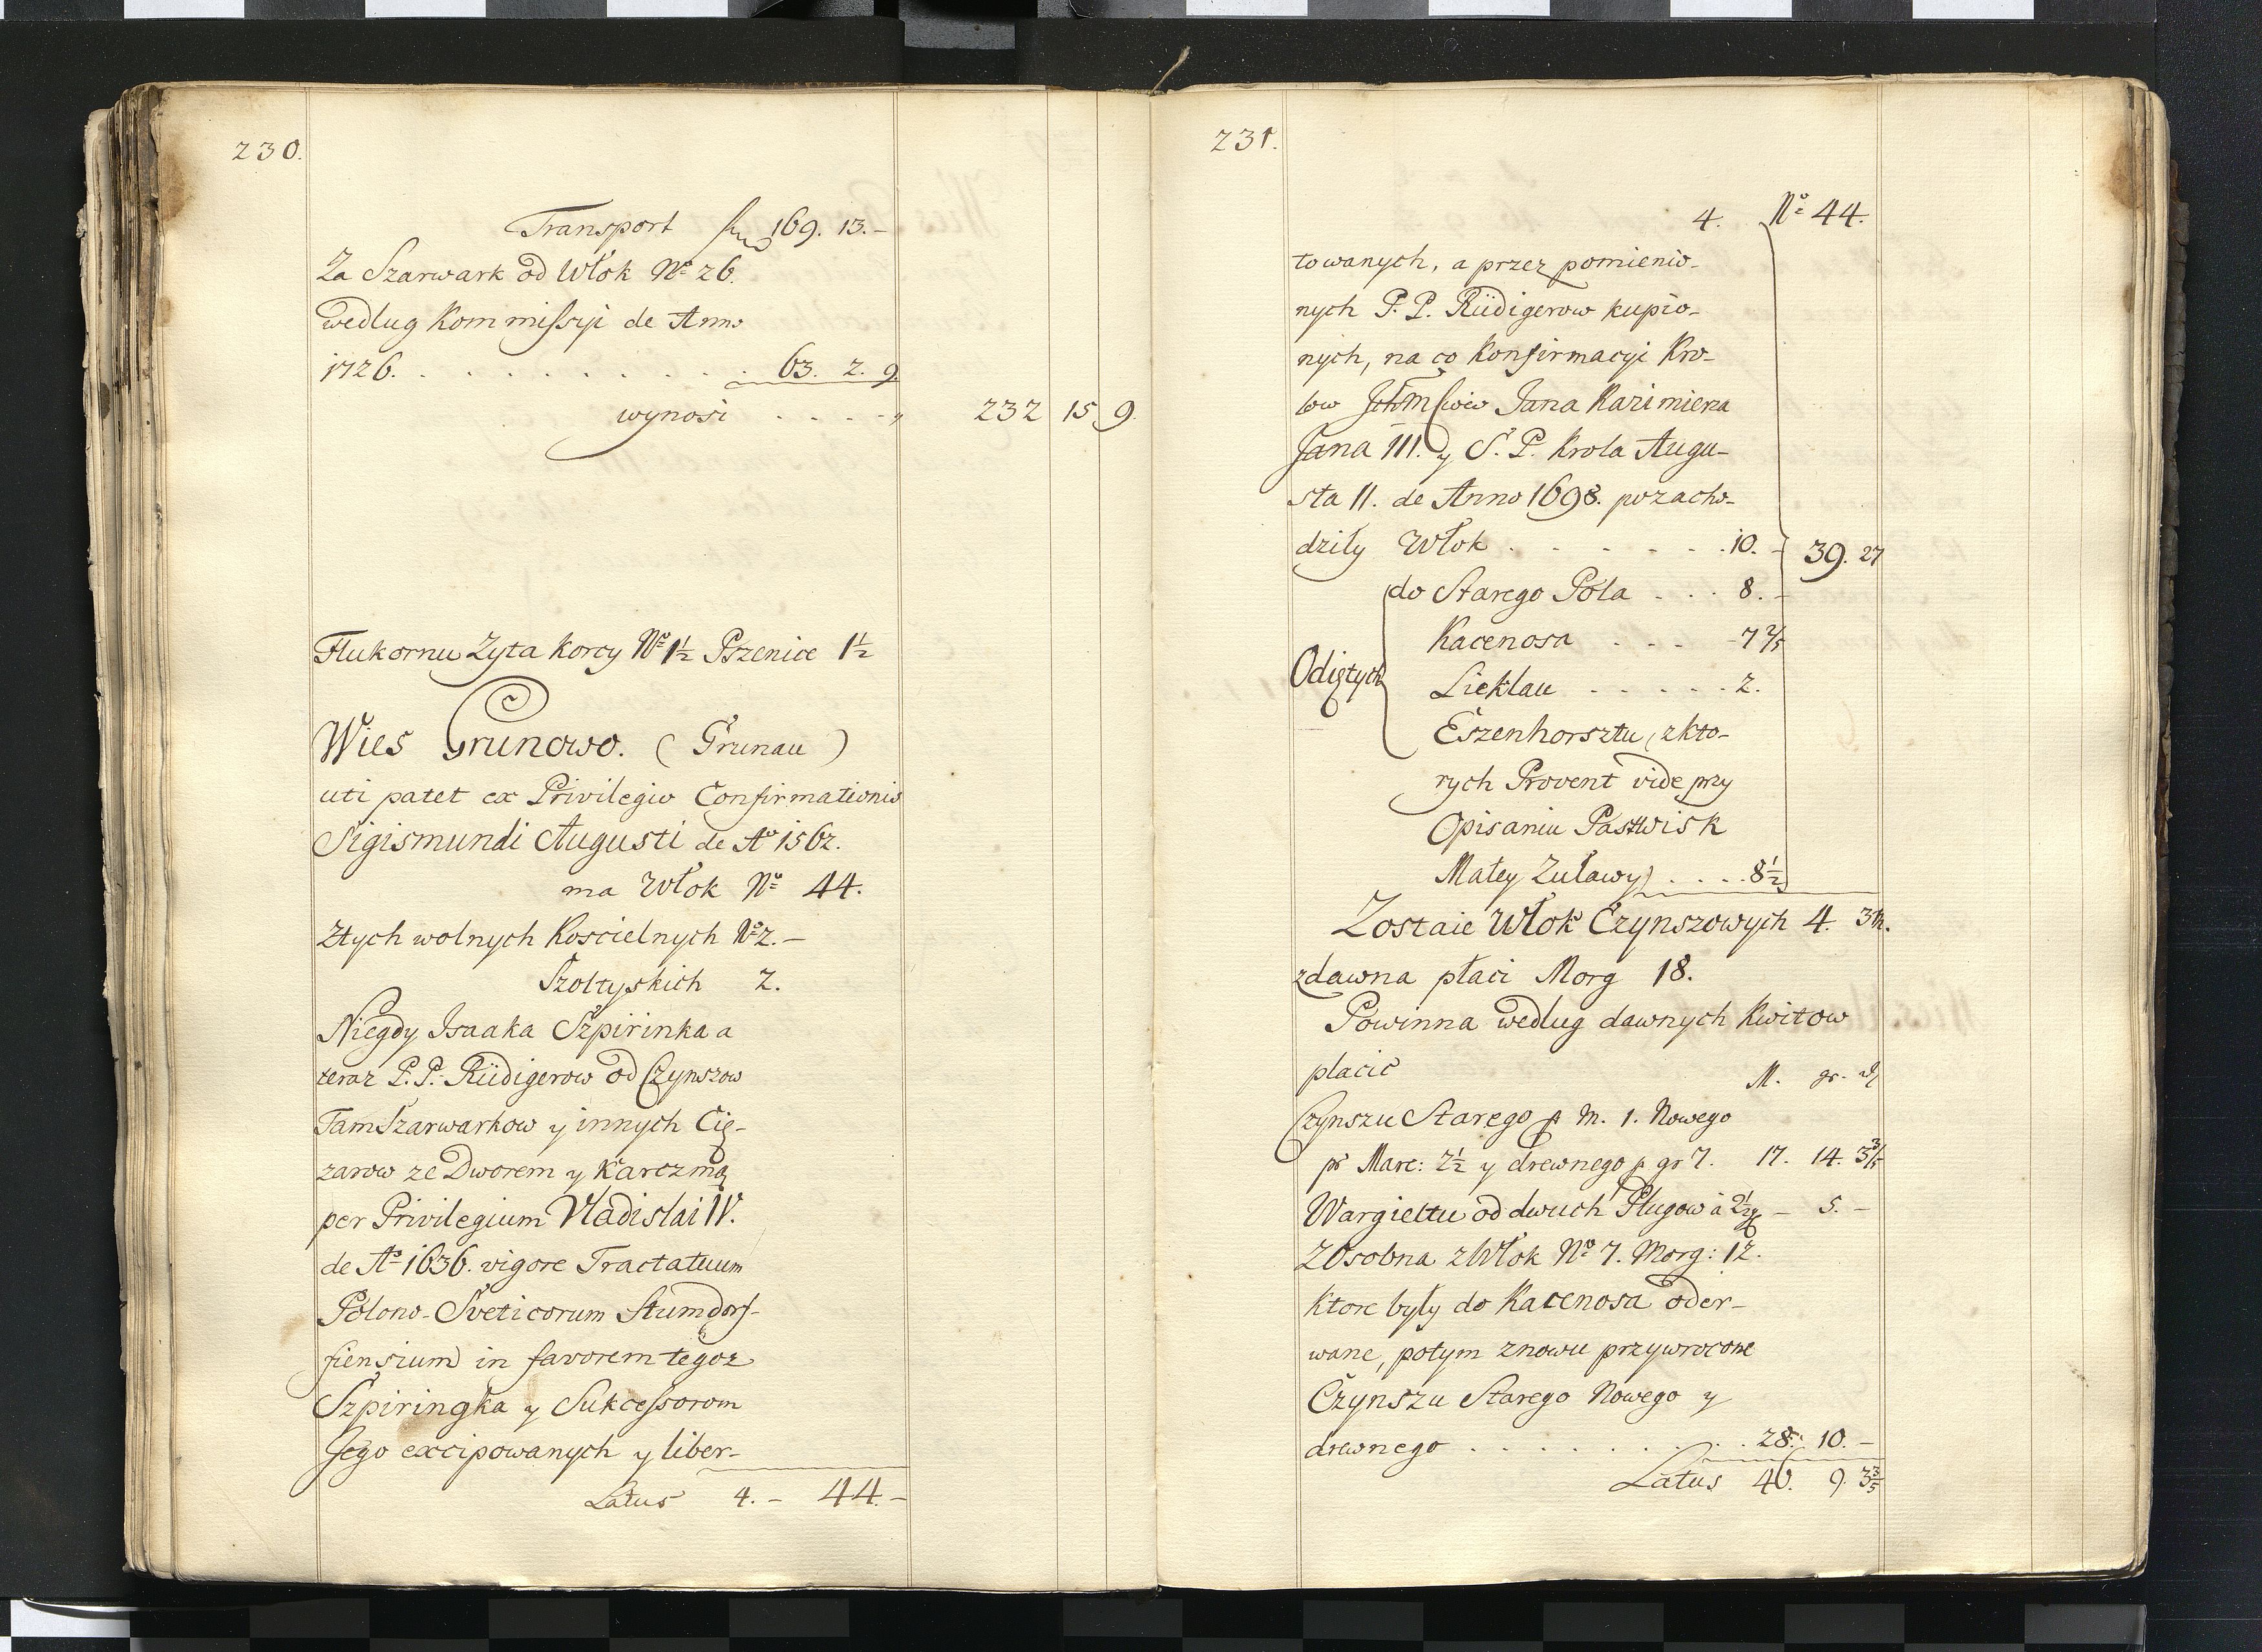 230.
Transport 169. 13. –
Za Szarwark od Włok No 26.
według Kommissyi de Anno
1726. . . . . . . . . . 63. 2. 9.
wynosi . . . . – 232 15 9.
Flukornu Zyta Korcy No 1½ Pszenice 1½
Wies Grunowo. ( Grunau )
uti patet ex Privilegio Confirmationis
Sigismundi Augusti de Ao 1562.
ma Włok No 44.
Ztych wolnych Koscielnych No 2. –
Szoltyskich 2.
Niegdy Isaaka Szpirinka a
teraz P. P. Rüdigerow od Czynszow
Tam Szarwarkow y innych Cię–
zarow ze Dworem y Karczmą
per Privilegium Vladislai IV.
de Ao 1636. vigore Tractatuum
Polono–Sveticorum Stumdorf–
fiensium in favorem tegoz
Szpiringka y Sukcessorom
Jego excipowanych y liber–
Latus 4. – 44. –
231.
4. No 44.
towanych, a przez pomienio–
nych P. P. Rüdigerow kupio–
nych, na co Konfirmacyi Kro–
low Jana Kazimierza
Jana III. y S. P. Krola Augu–
sta II. de Anno 1698. pozacho–
dziły Włok . . . . . . 10. – 39. 27
Odiętych do Starego Pola . . . 8. –
Kacenosa . . . – 7 2/5
Lieklau . . . . . 2.
Eszenhorsztu (zkto–
rych Provent vide przy
Opisaniu Pastwisk
Małey Zuławy) . . . . 8½
Zostaie Włok Czynszowych 4. 3 M.
zdawna płaci Morg 18.
Powinna według dawnych Kwitow
placic M. gr. ₰
Czynszu Starego p M. 1. Nowego
pr Marc: 2½ y drewnego p gr 7. 17. 14. 3 3/5
Wargieltu od dwuch Pługow à 2½ – 5. –
ZOsobna z Włok No 7. Morg: 12.
Ktore były do Kacenosa oder–
wane, potym znowu przywrocone
Czynszu Starego Nowego y
drewnego . . . . . . . . . 28. 10. –
Latus 46. 9. 3 3/5